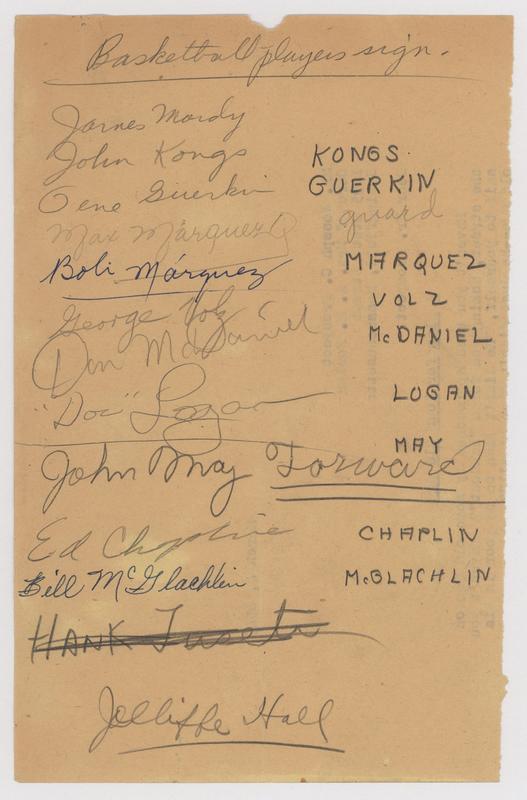 Basketball players sign.
James Mordy
John Kongs KONGS
Gene Guerkin GUERKIN
guard
Max Márquez
Bobi Márquez MARQUEZ
George Volz VOLZ
Don McDaniel McDANIEL
"Doc" Logan LOGAN
MAY
John May Forward
Ed Chaplin CHAPLIN
Bill McGlachlin McGLACHLIN
HANK
Jolliffe Hall